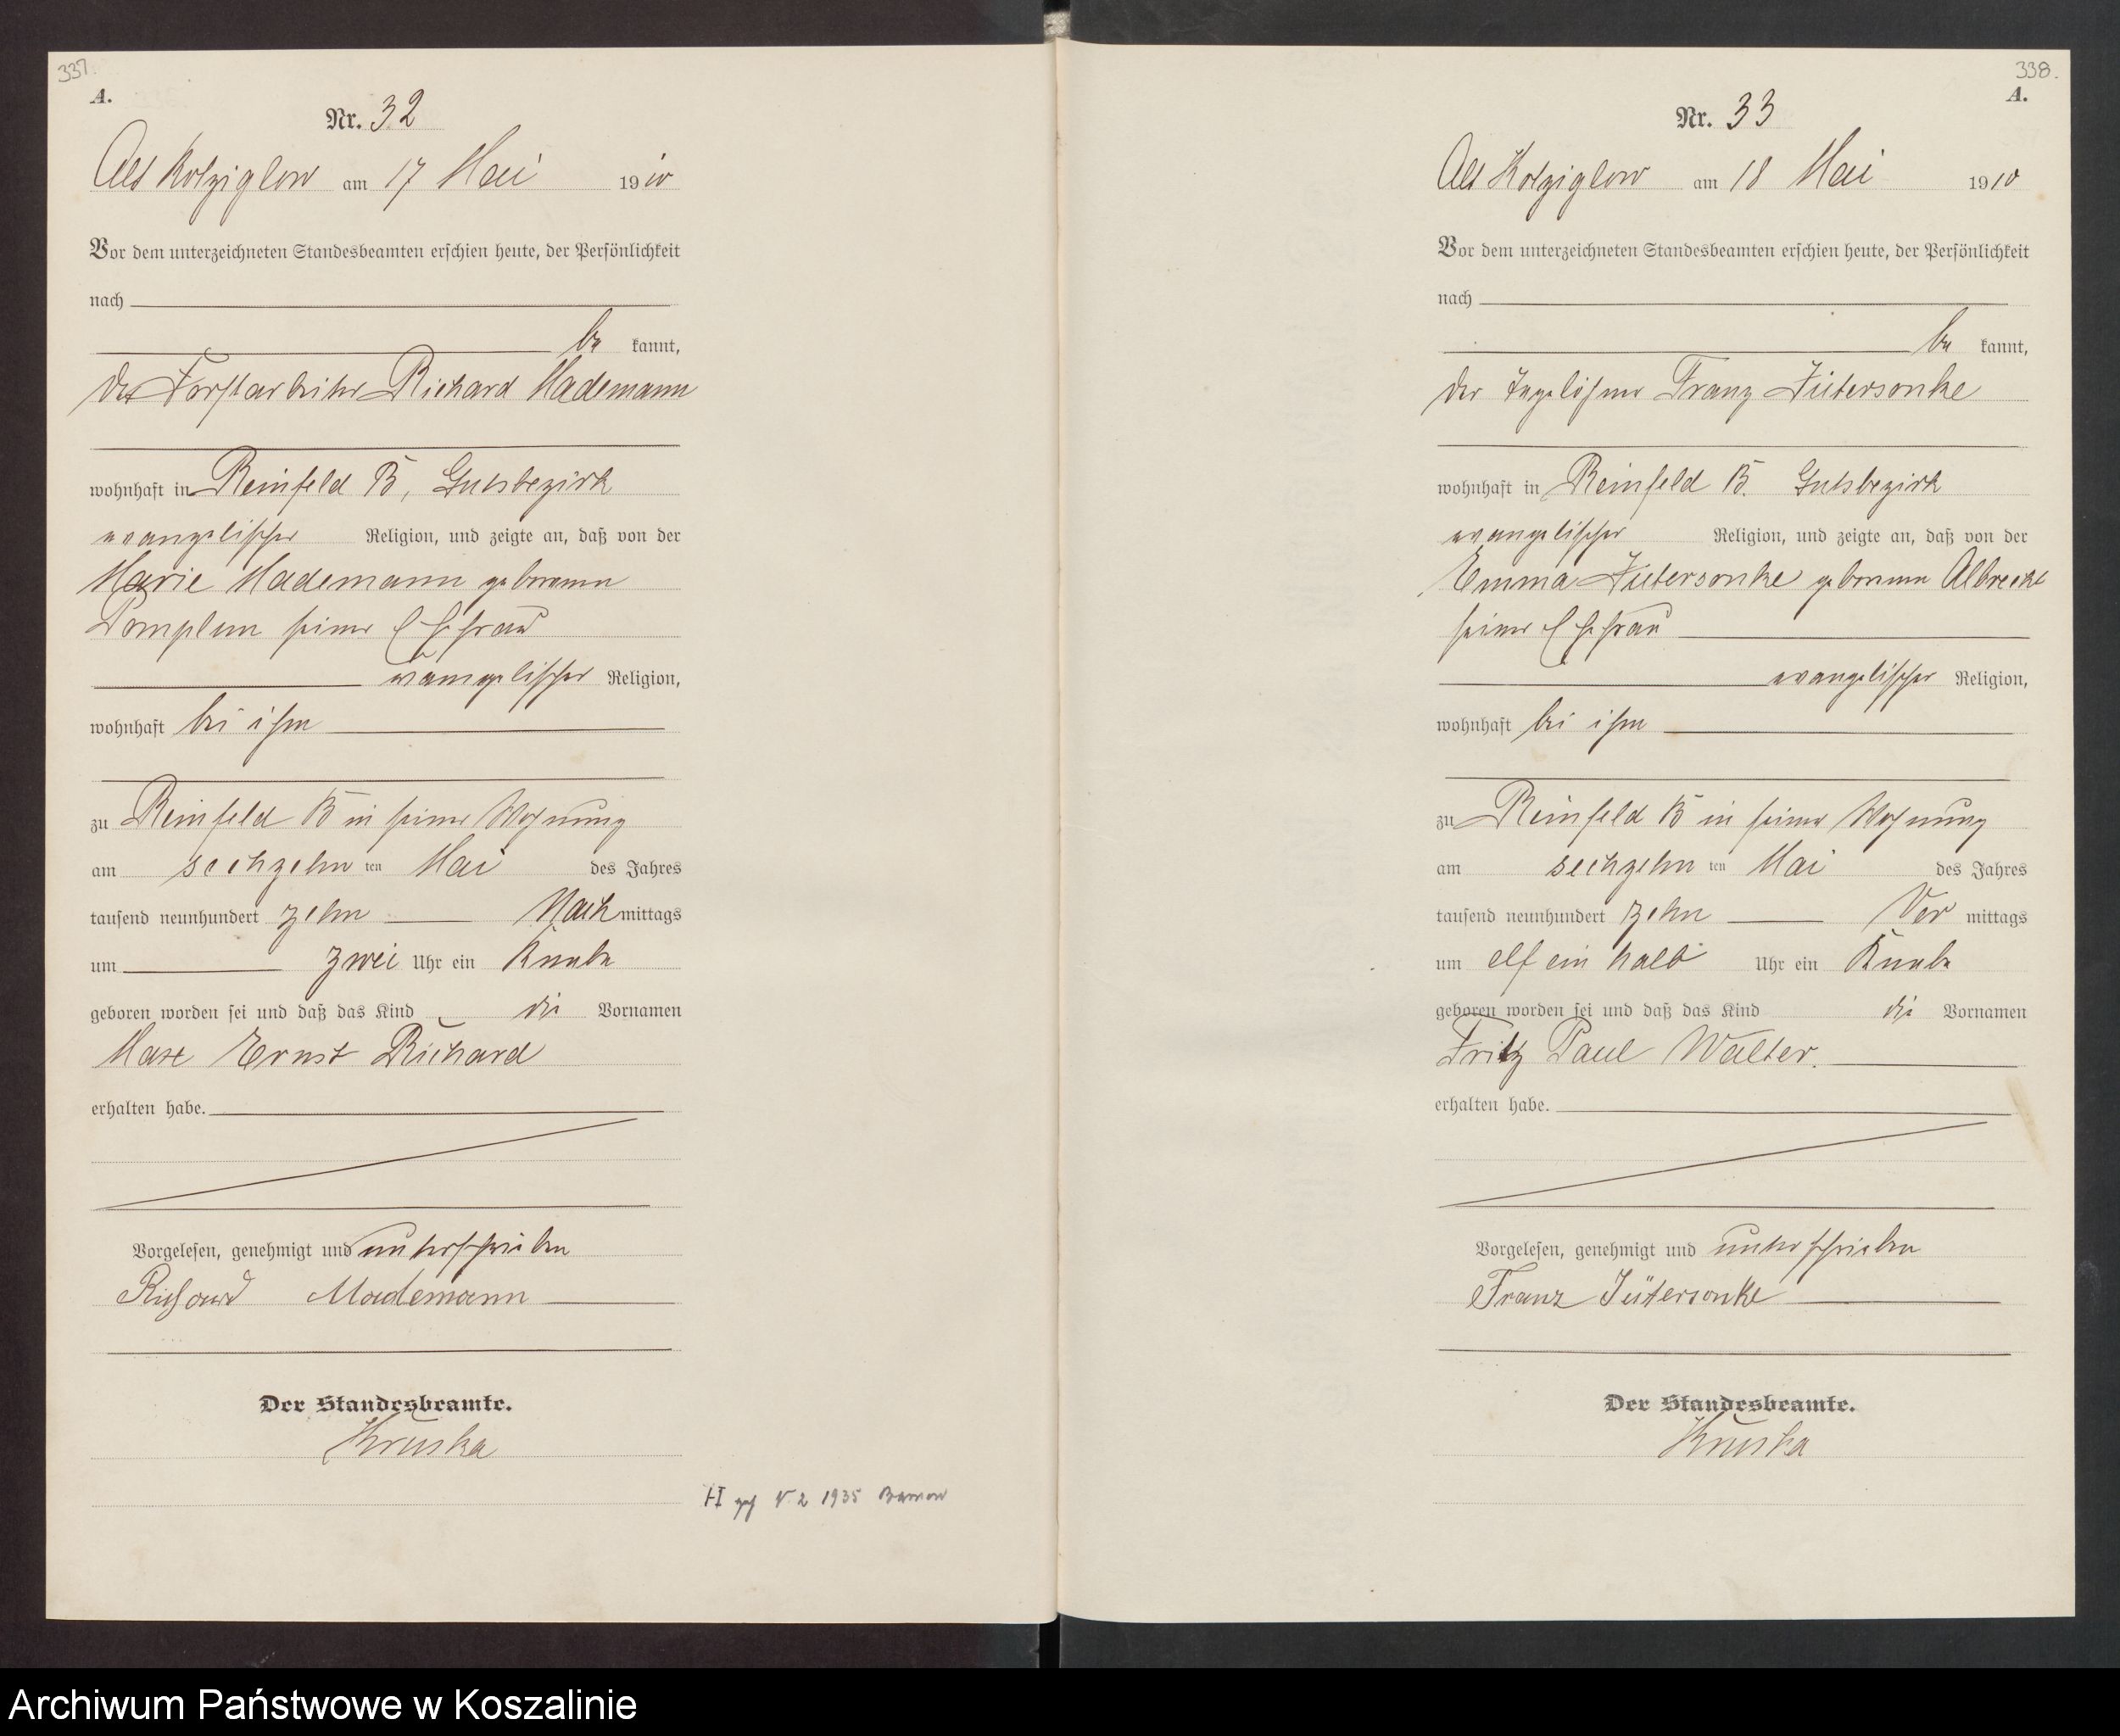 337.
A.
Nr. 32
Alt Kolziglow am 17 Mai 1910
Vor dem unterzeichneten Standesbeamten erschien heute, der Persönlichkeit
nach
be kannt,
der Forstarbeiter Richard Mademann
wohnhaft in Reinfeld B, Gutsbezirk
evangelischer Religion, und zeigte an, daß von der
Marie Mademann geborenen
Pomplun seiner Ehefrau
evangelischer Religion,
wohnhaft bei ihm
zu Reinfeld B in seiner Wohnung
am sechzehn ten Mai des Jahres
tausend neunhundert zehn Nachmittags
um zwei Uhr ein Knabe
geboren worden sei und daß das Kind die Vornamen
Max Ernst Richard
erhalten habe.
Vorgelesen, genehmigt und unterschrieben
Richard Mademann
Der Standesbeamte.
Kruska
1935
338.
A.
Nr. 33
Alt Kolziglow am 18 Mai 1910
Vor dem unterzeichneten Standesbeamten erschien heute, der Persönlichkeit
nach
be kannt,
der Tagelöhner Franz Jütersonke
wohnhaft in Reinfeld B. Gutsbezirk
evangelischer Religion, und zeigte an, daß von der
Emma Jütersonke geborenen Albrecht
seiner Ehefrau
evangelischer Religion,
wohnhaft bei ihm
zu Reinfeld B in seiner Wohnung
am sechzehn ten Mai des Jahres
tausend neunhundert zehn Vor mittags
um elf ein halb Uhr ein Knabe
geboren worden sei und daß das Kind die Vornamen
Fritz Paul Walter.
erhalten habe.
Vorgelesen, genehmigt und unterschrieben
Franz Jütersonke
Der Standesbeamte.
Kruska
Archiwum Państwowe w Koszalinie